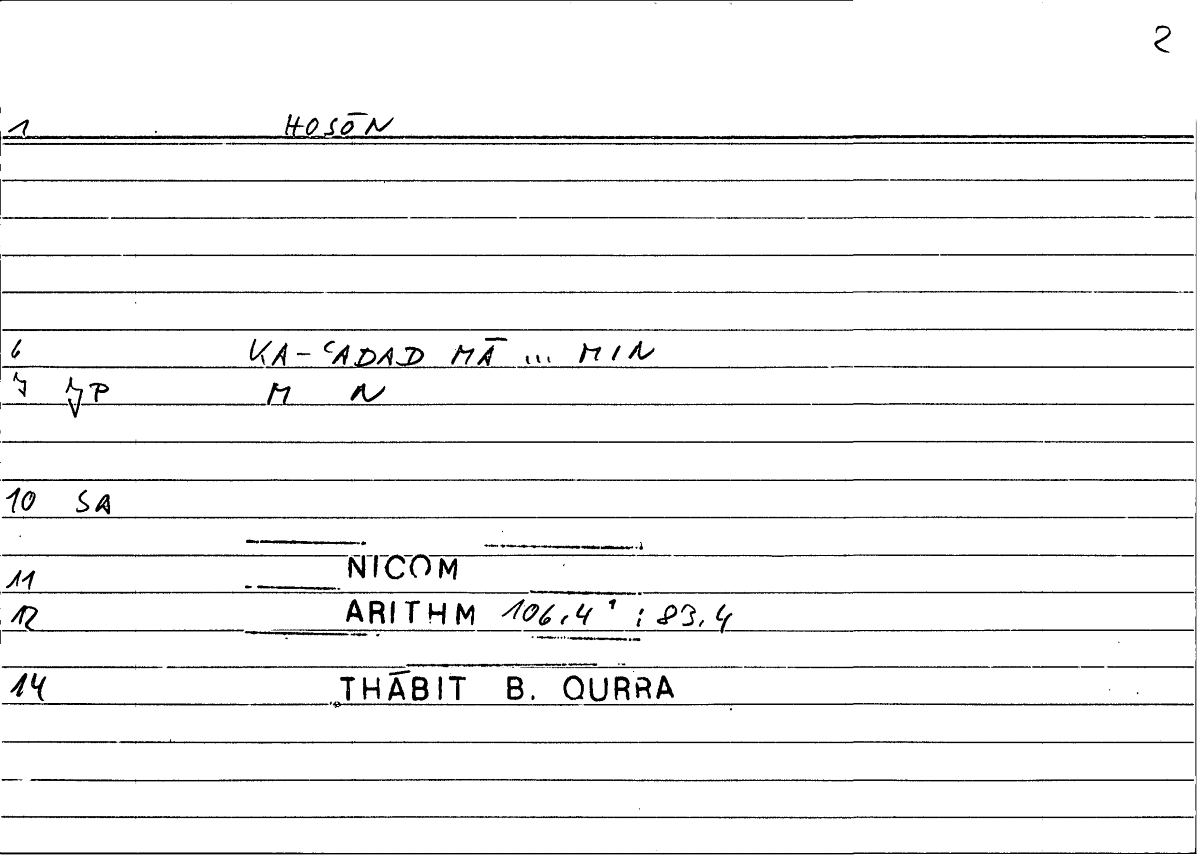 2
1 HOSŌN
6 KA-ʿADAD MĀ ... MIN
7 M N
10 SA
11 NICOM
12 ARITHM 106,4¹ ; 83,4
14 THĀBIT B. QURRA